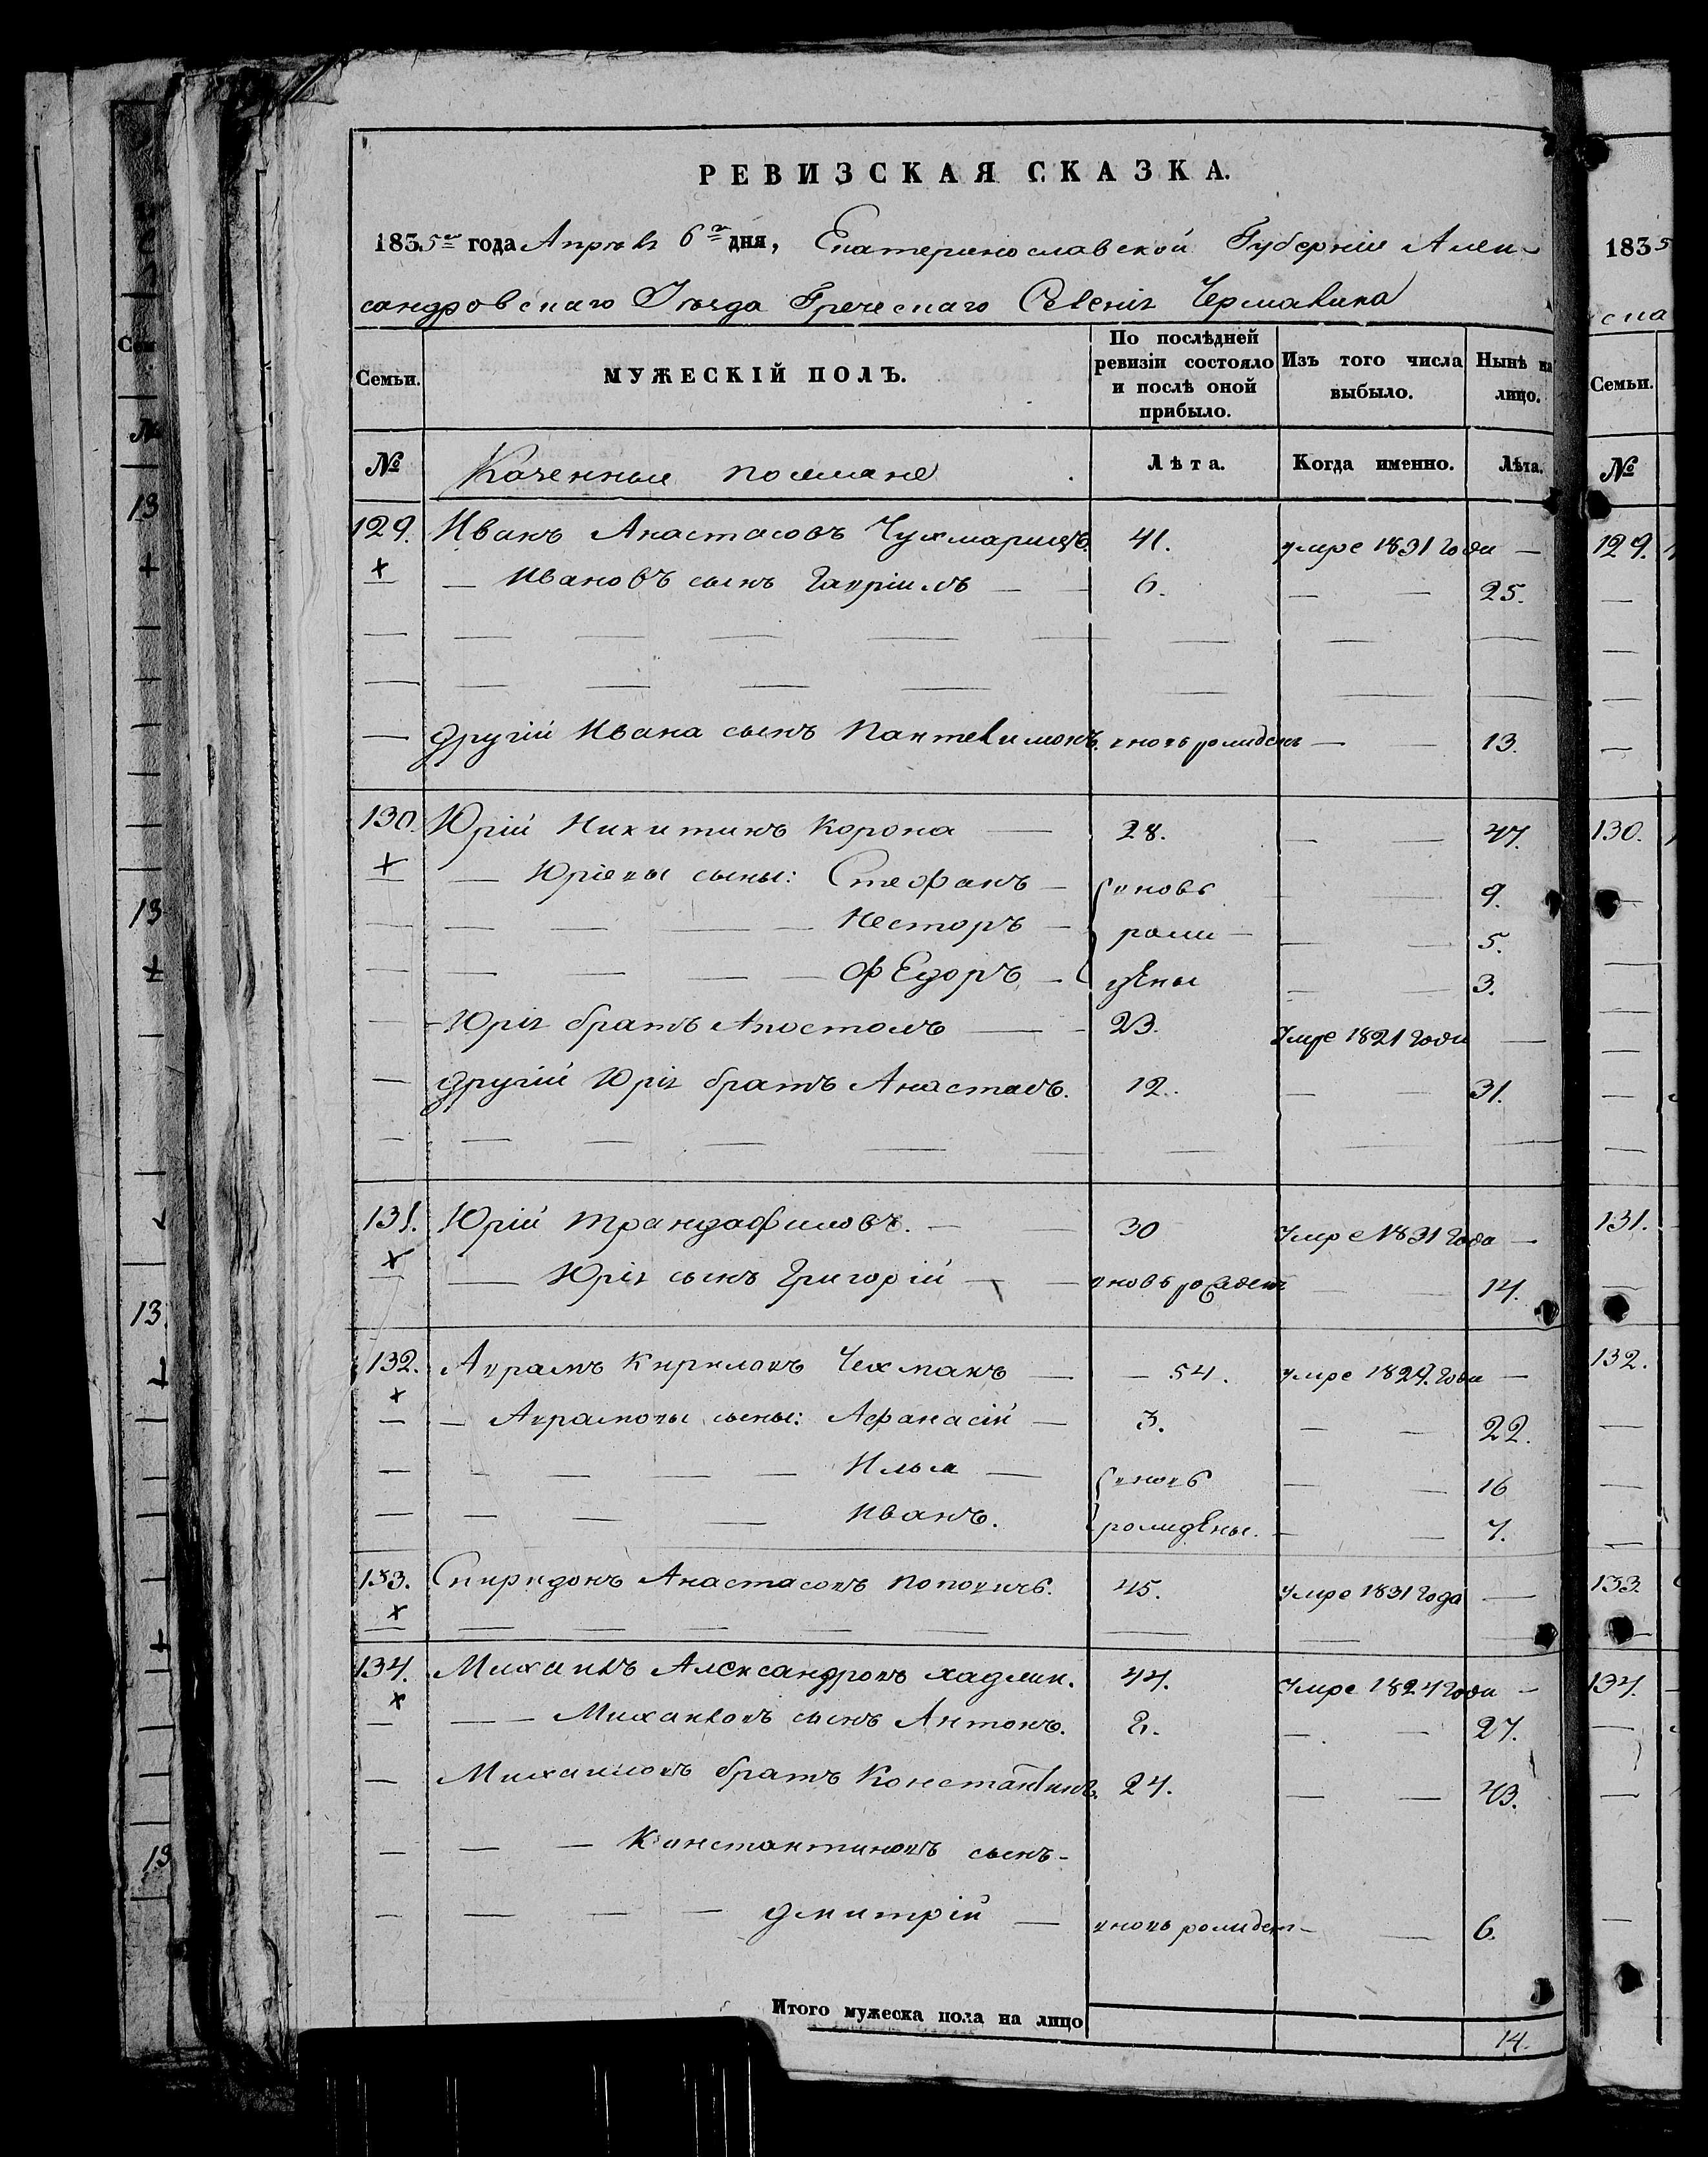 РЕВИЗСКАЯ СКАЗКА.
1835го года Апрѣля 6го дня, Екатеринославской Губерніи Алек-
сандровскаго Уѣзда Греческаго Селенія Чермалика
Семьи.
МУЖЕСКІЙ ПОЛЪ.
По послѣдней ревизіи состояло и послѣ оной прибыло.
Изъ того числа выбыло.
Нынѣ на лицо.
№ Казенные поселяне Лѣта. Когда именно. Лѣта.
129. Иванъ Анастасовъ Чухмарицъ. 41. умре 1831 года —
— Ивановъ сынъ Гавріилъ — 6. — — 25.
— другій Ивана сынъ Пантелимонъ. вновь рожденъ — — 13.
130. Юрій Никитинъ Корона — 28. — — 47.
— Юріевы сыны: Стефанъ — вновь — — 9.
— Несторъ — рож- — — 5.
— Федоръ — дены — — 3.
— Юрія братъ Апостолъ — 23. Умре 1821 года —
— другій Юрія братъ Анастасъ. 12. — — 31.
131. Юрій Трандафиловъ. — 30 Умре 1831 года —
— Юрія сынъ Григорій — вновь рожденъ — — 14.
132. Аврамъ Кириловъ Чехмакъ — 54. умре 1829. года —
— Аврамовы сыны: Афанасій — 3. — — 22.
— Илья — вновь — — 16
— Иванъ. рождены. — — 7.
133. Спиридонъ Анастасовъ Поповичь. 45. Умре 1831 года —
134. Михаилъ Александровъ Хаджи. 44. Умре 1824 года —
— Михаиловъ сынъ Антонъ. 8. — — 27.
— Михаиловъ братъ Константинъ. 24. — — 43.
— Константиновъ сынъ-
— Дмитрій — вновь рожден — — 6.
Итого мужеска пола на лицо 14.
1835
ска
Семьи.
№
129.
130.
131.
132.
133.
134.